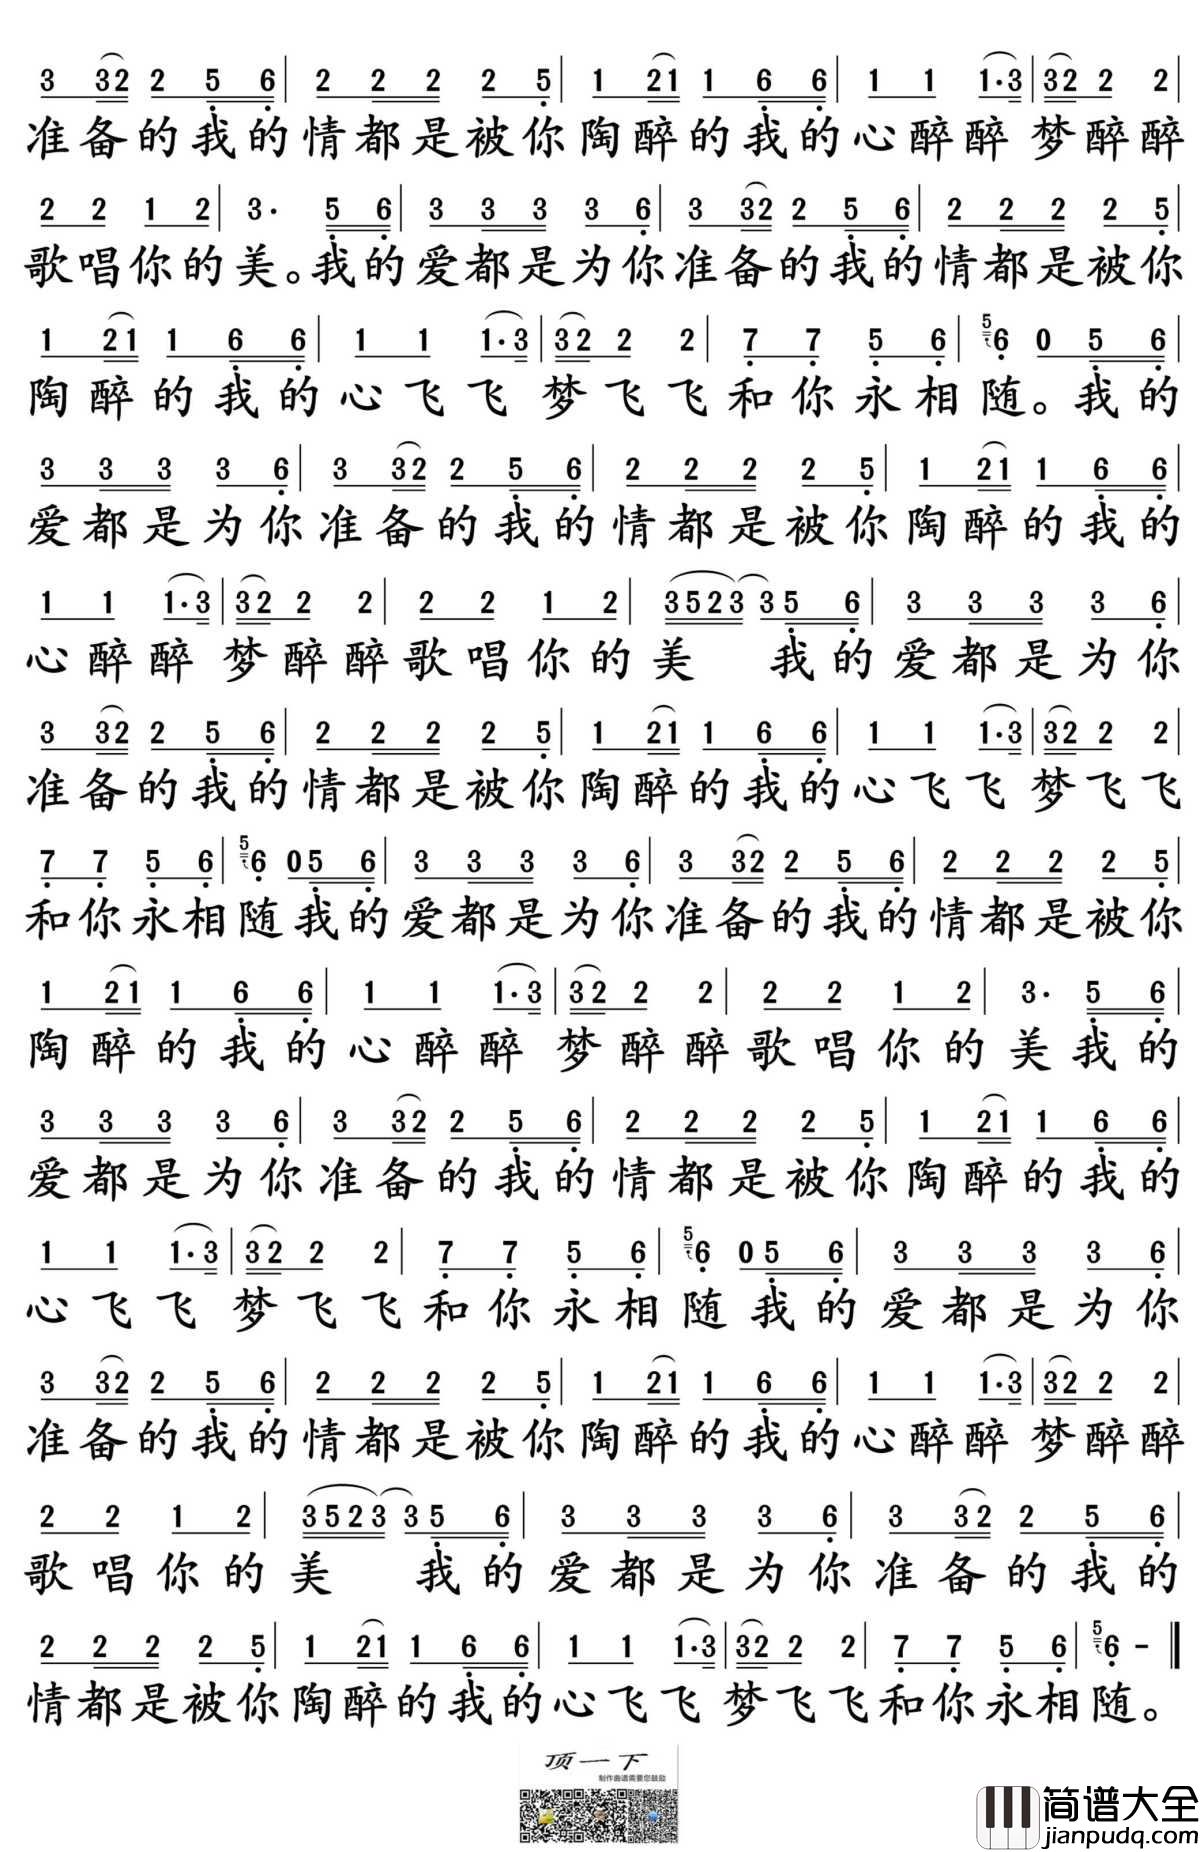 3 32 2 5 6 | 2 2 2 2 5 | 1 21 1 6 6 | 1 1 1·3 | 32 2 2 |
准备的我的情都是被你陶醉的我的心醉醉 梦醉醉
2 2 1 2 | 3· 5 6 | 3 3 3 3 6 | 3 32 2 5 6 | 2 2 2 2 5 |
歌唱你的美。我的爱都是为你准备的我的情都是被你
1 21 1 6 6 | 1 1 1·3 | 32 2 2 | 7 7 5 6 | 5 6 0 5 6 |
陶醉的我的心飞飞 梦飞飞和你永相随。我的
3 3 3 3 6 | 3 32 2 5 6 | 2 2 2 2 5 | 1 21 1 6 6 |
爱都是为你准备的我的情都是被你陶醉的我的
1 1 1·3 | 32 2 2 | 2 2 1 2 | 3523 3 5 6 | 3 3 3 3 6 |
心醉醉 梦醉醉歌唱你的美 我的爱都是为你
3 32 2 5 6 | 2 2 2 2 5 | 1 21 1 6 6 | 1 1 1·3 | 32 2 2 |
准备的我的情都是被你陶醉的我的心飞飞 梦飞飞
7 7 5 6 | 5 6 0 5 6 | 3 3 3 3 6 | 3 32 2 5 6 | 2 2 2 2 5 |
和你永相随我的爱都是为你准备的我的情都是被你
1 21 1 6 6 | 1 1 1·3 | 32 2 2 | 2 2 1 2 | 3· 5 6 |
陶醉的我的心醉醉 梦醉醉歌唱你的美我的
3 3 3 3 6 | 3 32 2 5 6 | 2 2 2 2 5 | 1 21 1 6 6 |
爱都是为你准备的我的情都是被你陶醉的我的
1 1 1·3 | 32 2 2 | 7 7 5 6 | 5 6 0 5 6 | 3 3 3 3 6 |
心飞飞 梦飞飞和你永相随我的爱都是为你
3 32 2 5 6 | 2 2 2 2 5 | 1 21 1 6 6 | 1 1 1·3 | 32 2 2 |
准备的我的情都是被你陶醉的我的心醉醉 梦醉醉
2 2 1 2 | 3523 3 5 6 | 3 3 3 3 6 | 3 32 2 5 6 |
歌唱你的美 我的爱都是为你准备的我的
2 2 2 2 5 | 1 21 1 6 6 | 1 1 1·3 | 32 2 2 | 7 7 5 6 | 5 6 - ‖
情都是被你陶醉的我的心飞飞 梦飞飞和你永相随。
顶一下
制作曲谱需要您鼓励
简谱大全
jianpudq.com